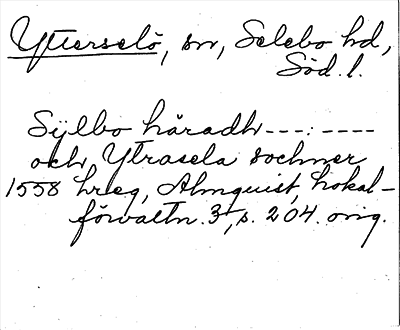 Ytterselö, sn, Selebo hd,
Söd. l.
Sÿlbo häradh ---:----
och Ytrasela sochner
1558 hreg, Almquist, Lokal-
förvaltn. 3, s. 204. orig.